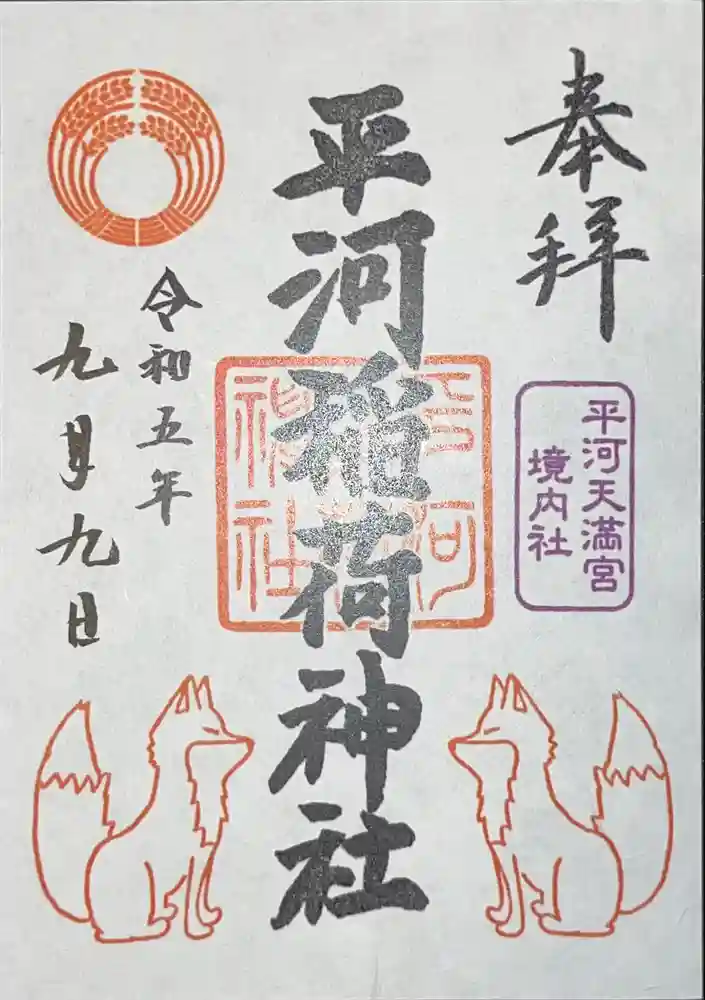 奉拝
平河天満宮
境内社
平河稲荷神社
令和五年
九月九日